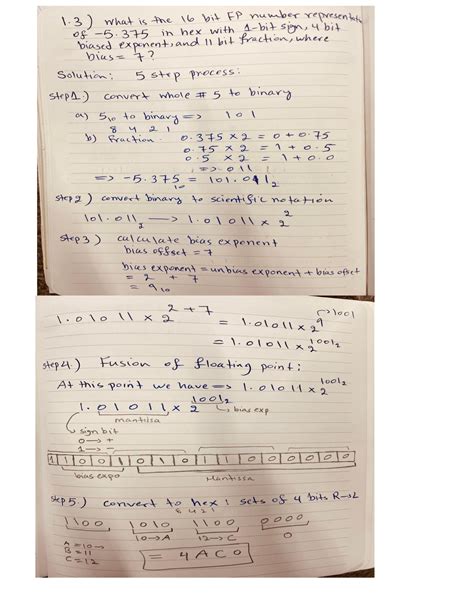 1.3) What is the 16 bit FP number representation
of -5.375 in hex with 1-bit sign, 4 bit
biased exponent, and 11 bit fraction, where
bias = 7?
Solution: 5 step process:
Step 1.) convert whole # 5 to binary
a) 5₁₀ to binary => 1 0 1
8 4 2 1
b) fraction 0.375 x 2 = 0 + 0.75
0.75 x 2 = 1 + 0.5
0.5 x 2 = 1 + 0.0
=> 011
=> -5.375₁₀ = 101.011₂
Step 2) convert binary to scientific notation
101.011₂ → 1.01011 x 2²
Step 3) calculate bias exponent
bias offset = 7
bias exponent = unbias exponent + bias ofset
= 2 + 7
= 9₁₀
1.01011 x 2²⁺⁷ = 1.01011 x 2⁹ → 1001
= 1.01011 x 2^1001₂
Step 4.) Fusion of floating point:
At this point we have => 1.01011 x 2^1001₂
1.01011 x 2^1001₂ → bias exp
mantissa
sign bit
0 → +
1 → -
1 1 0 0 1 0 1 0 1 1 0 0 0 0 0 0
bias expo Mantissa
Step 5.) convert to hex: sets of 4 bits R→L
8 4 2 1
1100 1010 1100 0000
10→A 12→C 0
A = 10
B = 11
C = 12
= 4AC0